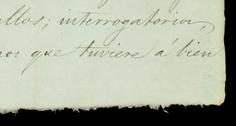 llos; interrogatorios,
nos que tuviere á bien